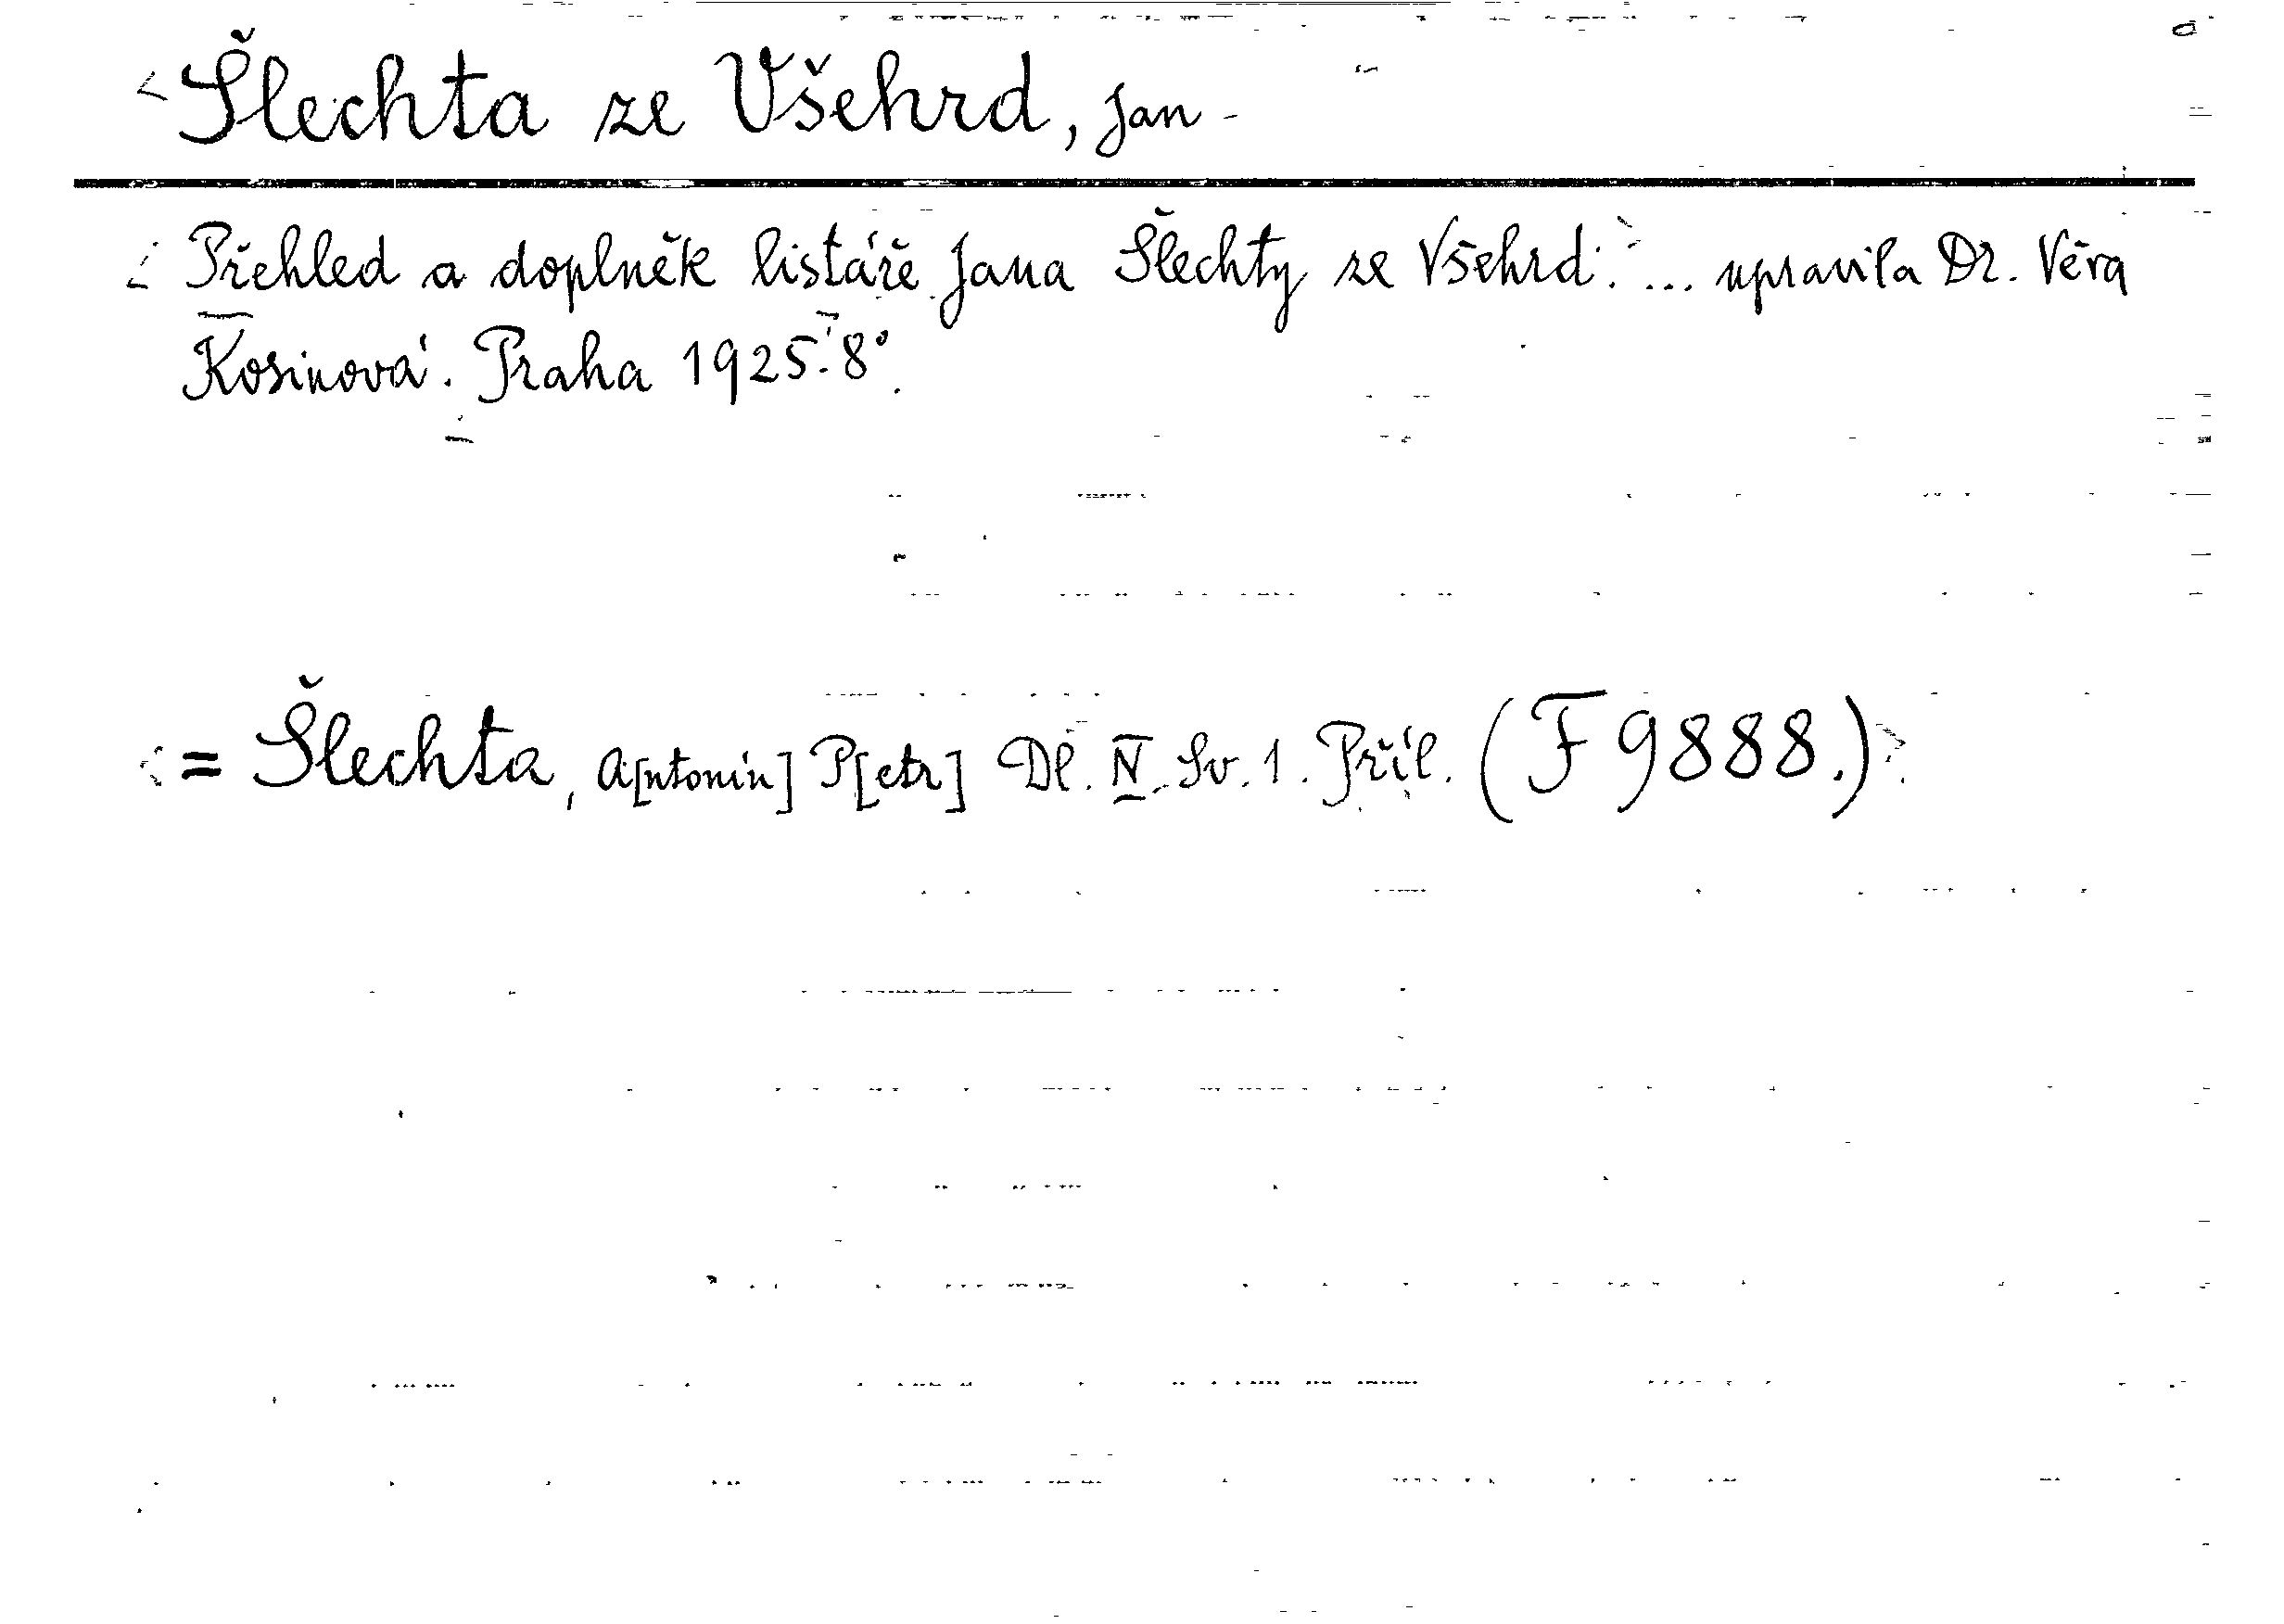 Šlechta ze Všehrd, Jan -
Přehled a doplněk listáře Jana Šlechty ze Všehrd. ... upravila Dr. Věra
Kosinová. Praha 1925. 8°.
= Šlechta, A[ntonín] P[etr] Dl. IV. Sv. 1. Příl. (F 9888.)